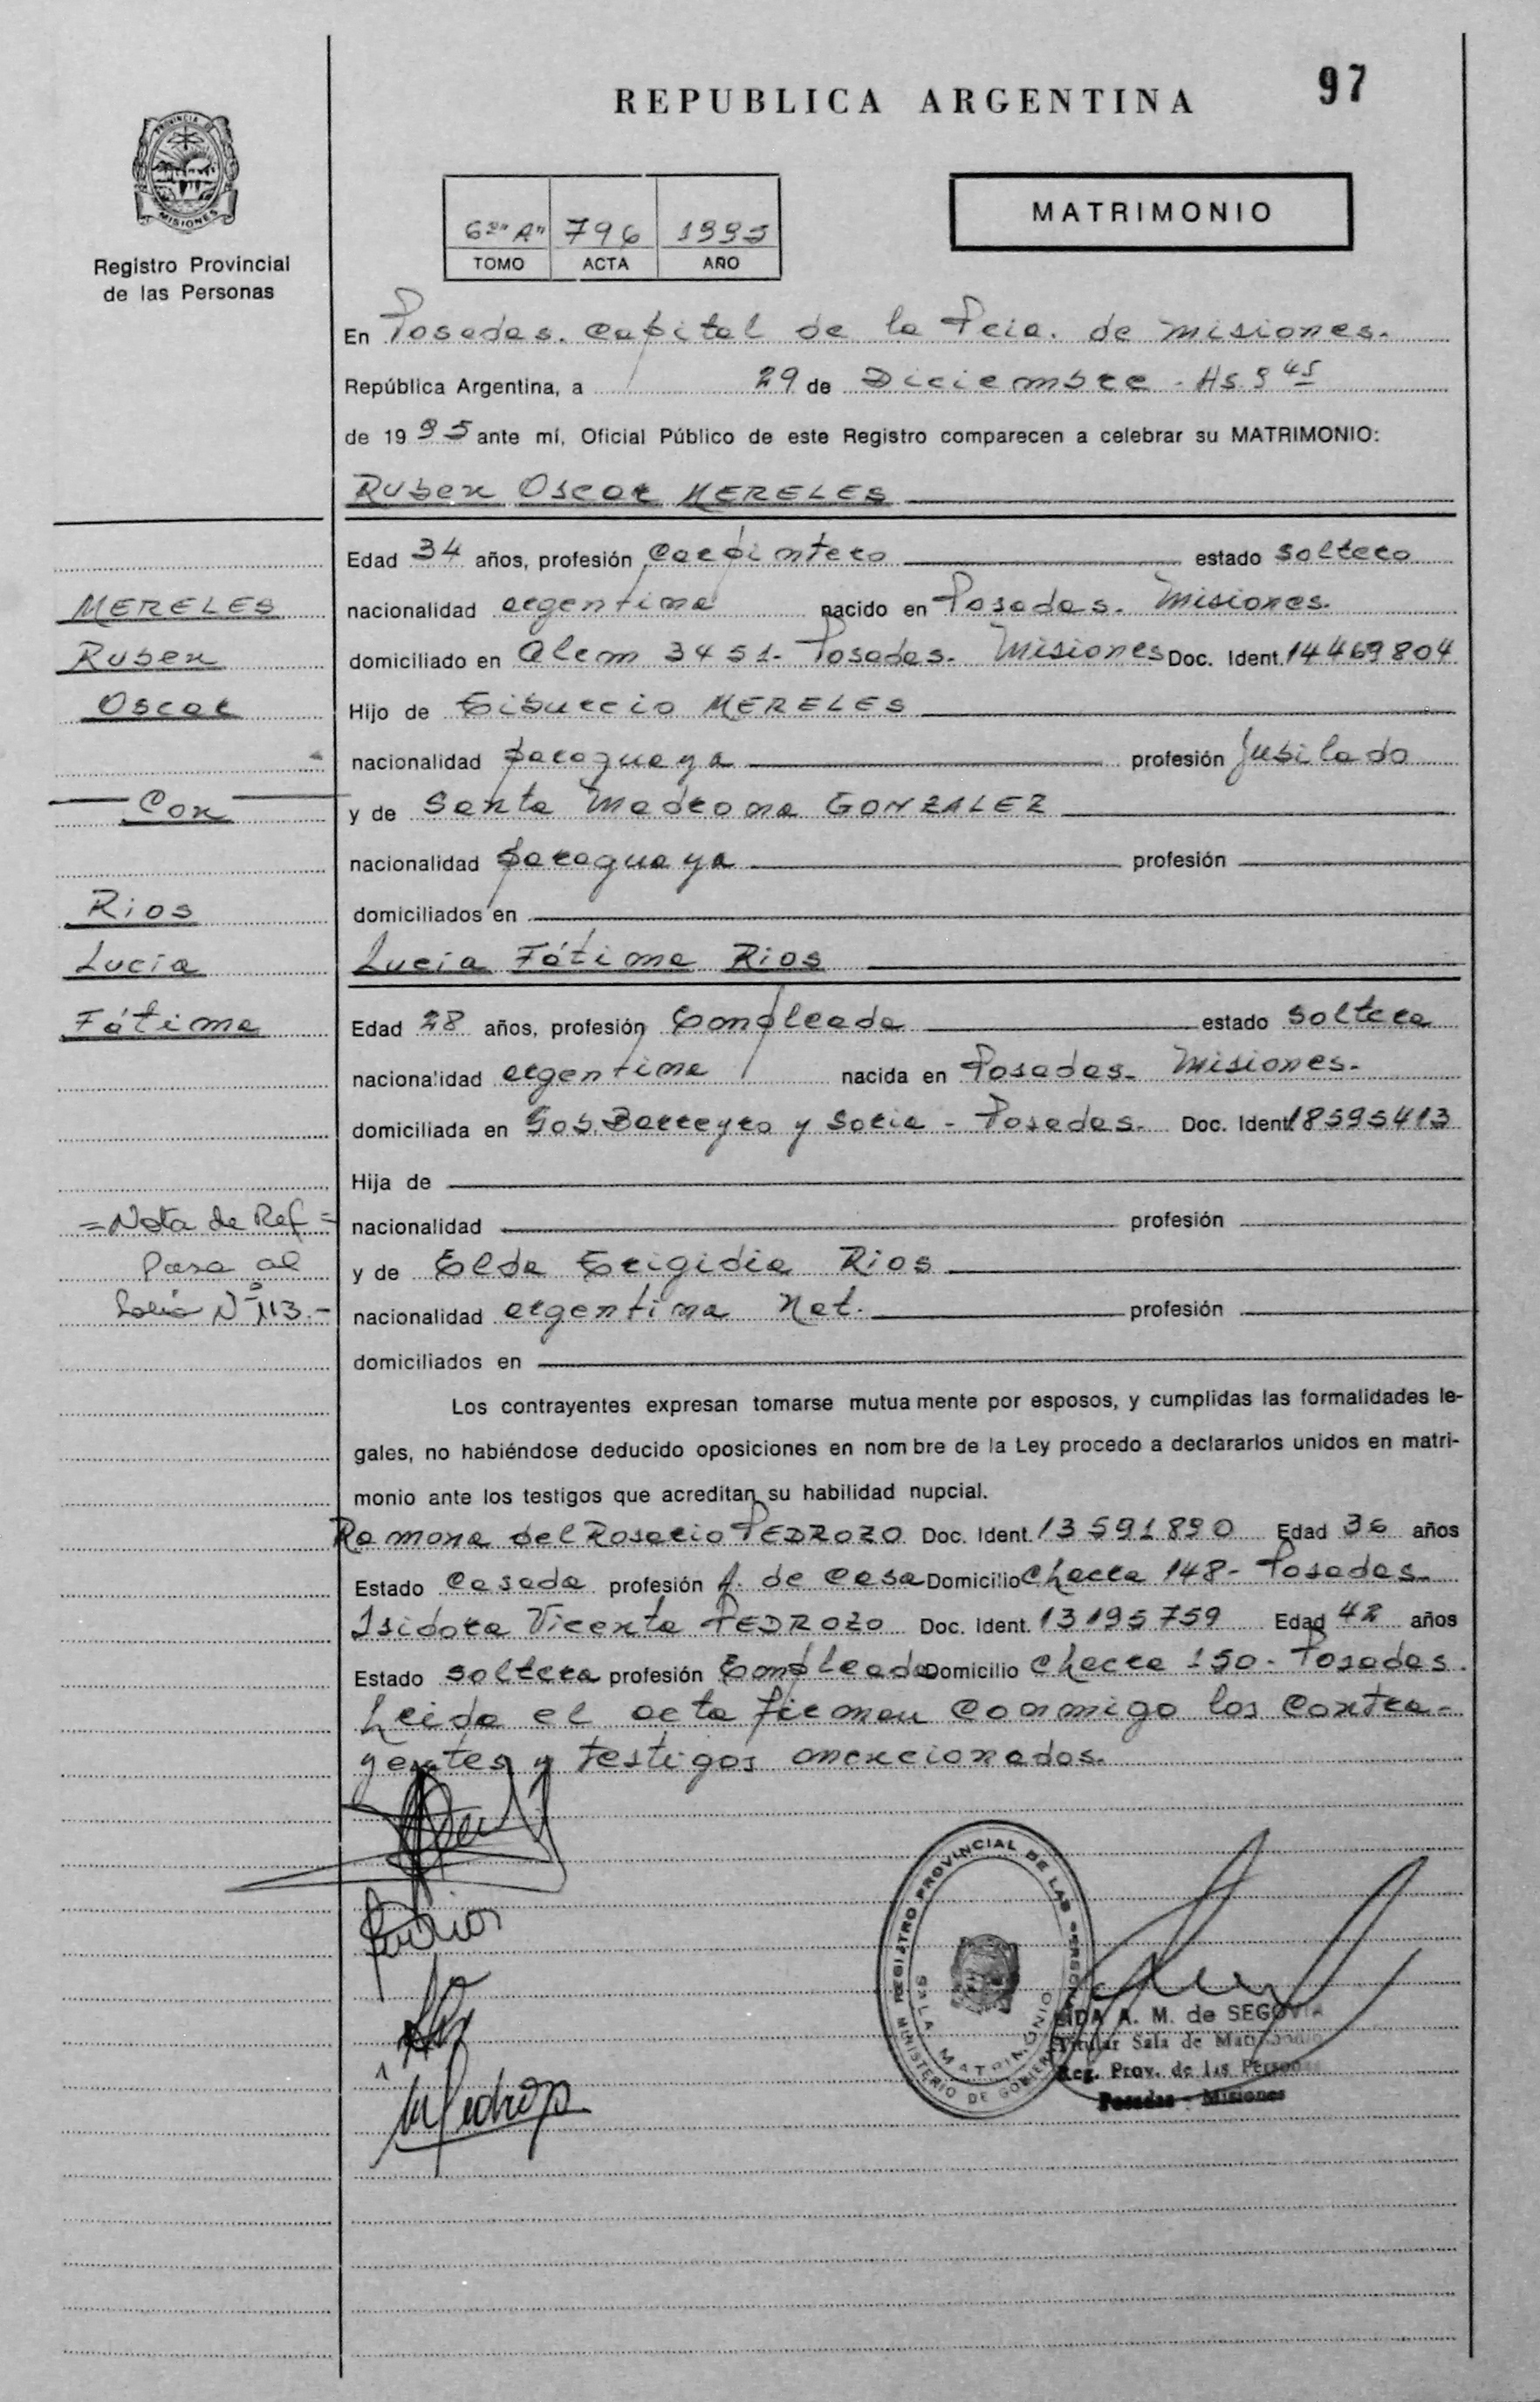 97
REPUBLICA ARGENTINA
PROVINCIA DE
MISIONES
Registro Provincial
de las Personas
6º "A" 796 1995
TOMO ACTA AÑO
MATRIMONIO
En Posadas. Capital de la Pcia. de Misiones.
República Argentina, a 29 de Diciembre - Hs 9 45
de 19 95 ante mí, Oficial Público de este Registro comparecen a celebrar su MATRIMONIO:
Ruben Oscar MERELES
Edad 34 años, profesión Carpintero estado soltero
MERELES
nacionalidad argentina nacido en Posadas. Misiones.
Ruben
domiciliado en Alem 3451- Posadas. Misiones Doc. Ident. 14469804
Oscar
Hijo de Tiburcio MERELES
nacionalidad paraguaya profesión Jubilado
Con
y de Santa Madrona GONZALEZ
nacionalidad paraguaya profesión
Rios
domiciliados en
Lucia
Lucia Fátima Rios
Fátima
Edad 28 años, profesión Empleada estado soltera
nacionalidad argentina nacida en Posadas- Misiones.
domiciliada en Gob. Barreyro y Soria - Posadas. Doc. Ident. 18595413
Hija de
=Nota de Ref=
nacionalidad profesión
Pasa al
y de Elda Erigidia Rios
folio Nº 113.-
nacionalidad argentina Nat. profesión
domiciliados en
Los contrayentes expresan tomarse mutuamente por esposos, y cumplidas las formalidades le-
gales, no habiéndose deducido oposiciones en nombre de la Ley procedo a declararlos unidos en matri-
monio ante los testigos que acreditan su habilidad nupcial.
Ramona del Rosario PEDROZO Doc. Ident. 13591890 Edad 36 años
Estado Casada profesión A. de casa Domicilio Chacra 148- Posadas.
Isidora Vicenta PEDROZO Doc. Ident. 13195759 Edad 42 años
Estado soltera profesión Empleada Domicilio Chacra 150- Posadas.
Leida el acta firman conmigo los contra-
yentes y testigos mencionados.
REGISTRO PROVINCIAL DE LAS PERSONAS
SALA MATRIMONIO
MINISTERIO DE GOBIERNO
A. M. de SEGOVIA
Titular Sala de Matrimonio
Reg. Prov. de las Personas
Posadas - Misiones